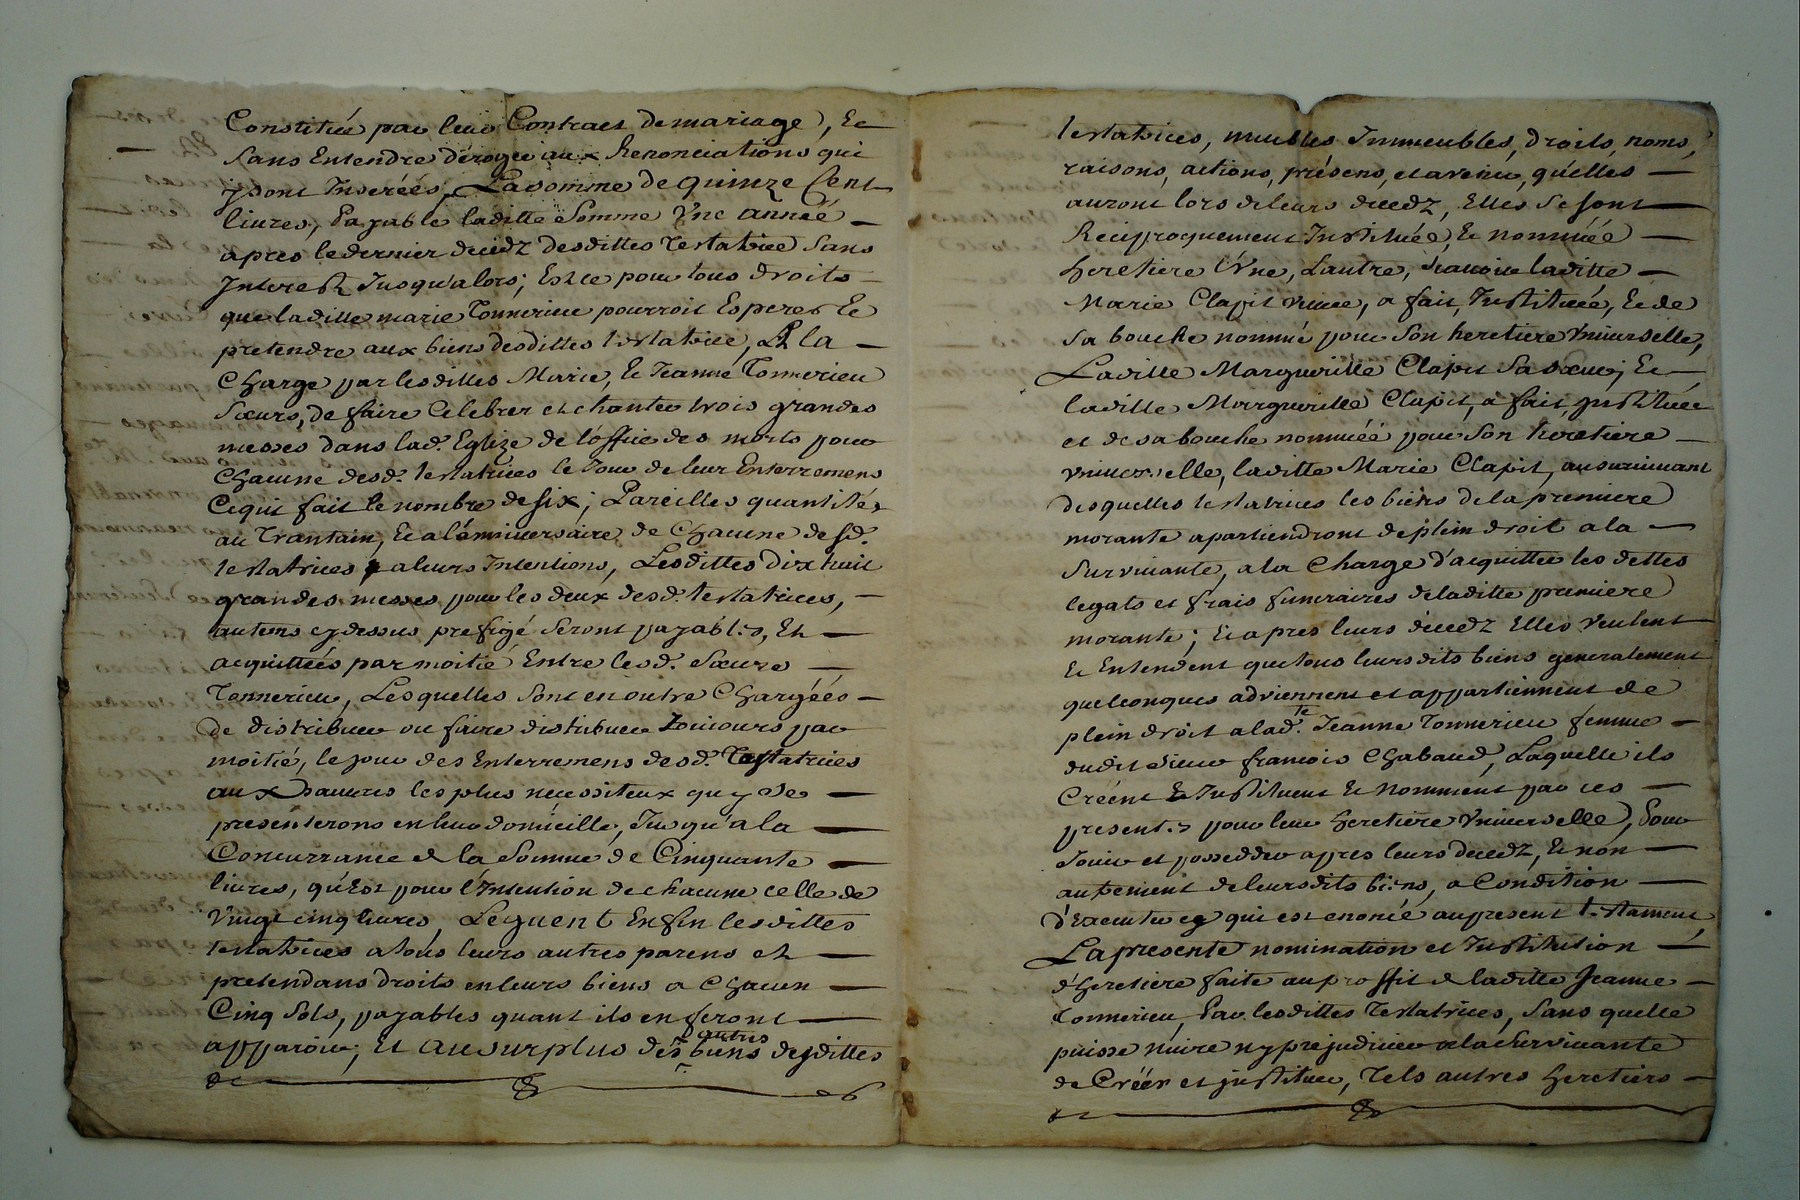 Constitués par leur Contract de mariage, Et
Sans Entendre déroger aux Renonciations qui
y sont Inserées, La somme de quinze Cent
livres, Payable laditte Somme Vne année
apres le dernier decedz desdittes Testatrice Sans
Interest Jusqu'alors; Est ce pour tous droits
que laditte marie Tonnerieu pourroit Esperer Et
pretendre aux biens desdittes testatrice, A la
Charge par lesdittes Marie, Et Jeanne Tonnerieu
Sœurs, de faire Celebrer et chanter trois grandes
messes dans lad. Eglize de l'office des morts pour
Chacune desd. testatrices le Jour de leur Enterremens
Ce qui fait le nombre de six; Pareilles quantités
au Trantain, Et a l'énniversaire de Chacune desd.
testatrices a leurs Intentions, Lesdittes dix huit
grandes messes pour les deux desd. testatrices,
au tems cy dessus prefigé seront payables, Et
acquittées par moitié Entre lesd. Sœurs
Tonnerieu, Lesquelles sont en outre Chargéés
de distribuer ou faire distribuer toujours par
moitié, le jour des Enterremens desd. Testatrices
aux Pauvres les plus necessiteux quy se
presenterons en leur domicille, Jusqu'a la
Concurrance de la Somme de Cinquante
livres, qu'Est pour l'Intention de chacune celle de
Vingt cinq livres, Leguent Enfin lesdittes
testatrices a tous leurs autres parens et
pretendans droits en leurs biens a Chacun
Cinq Sols, payables quant ils en feront
apparoir; Et au surplus dés autres biens desdittes
testatrices, meubles Immeubles, droits, noms,
raisons, actions, présens, et avenir, qu'elles
auront lors de leurs decedz, Elles se sont
Reciproquement Instituée, Et nommée
heretiere l'Vne, Lautre, scavoir laditte
Marie Clapit veuve, a fait, Instituée, Et de
sa bouche nommé pour Son heretiere Vniverselle,
Laditte Margueritte Clapit Sa sœur; Et
laditte Margueritte Clapit, a fait, Instituée
et de sa bouche nommée pour Son heretiere
Vniverselle, laditte Marie Clapit, au survivant
desquelles testatrices les biens de la premiere
morante apartiendront de plein droit a la
Survivante, a la Charge d'acquitter les dettes
legats et frais funeraires de laditte premiere
morante; Et apres leurs décedz Elles veulent
Et Entendent que tous leursdits biens generalement
quelconques adviennent et appartiennent de
plein droit a lad.te Jeanne Tonnerieu femme
dudit Sieur francois Chabaud, Laquelle ils
Créent Et Instituent Et nomment par ces
presentes pour leur heretiere Vniverselle, Pour
Jouir et posseder apres leurs decedz, Et non
autrement de leursdits biens, a Condition
d'Executer ce qui est enoncé au present testament
La presente nomination et Institution
d'heretiere faite au proffit de laditte Jeanne
Tonnerieu, Par lesdittes Testatrices, Sans quelle
puisse nuire ny prejudicier a la Survivante
de Créer et instituer, Tels autres heretiers